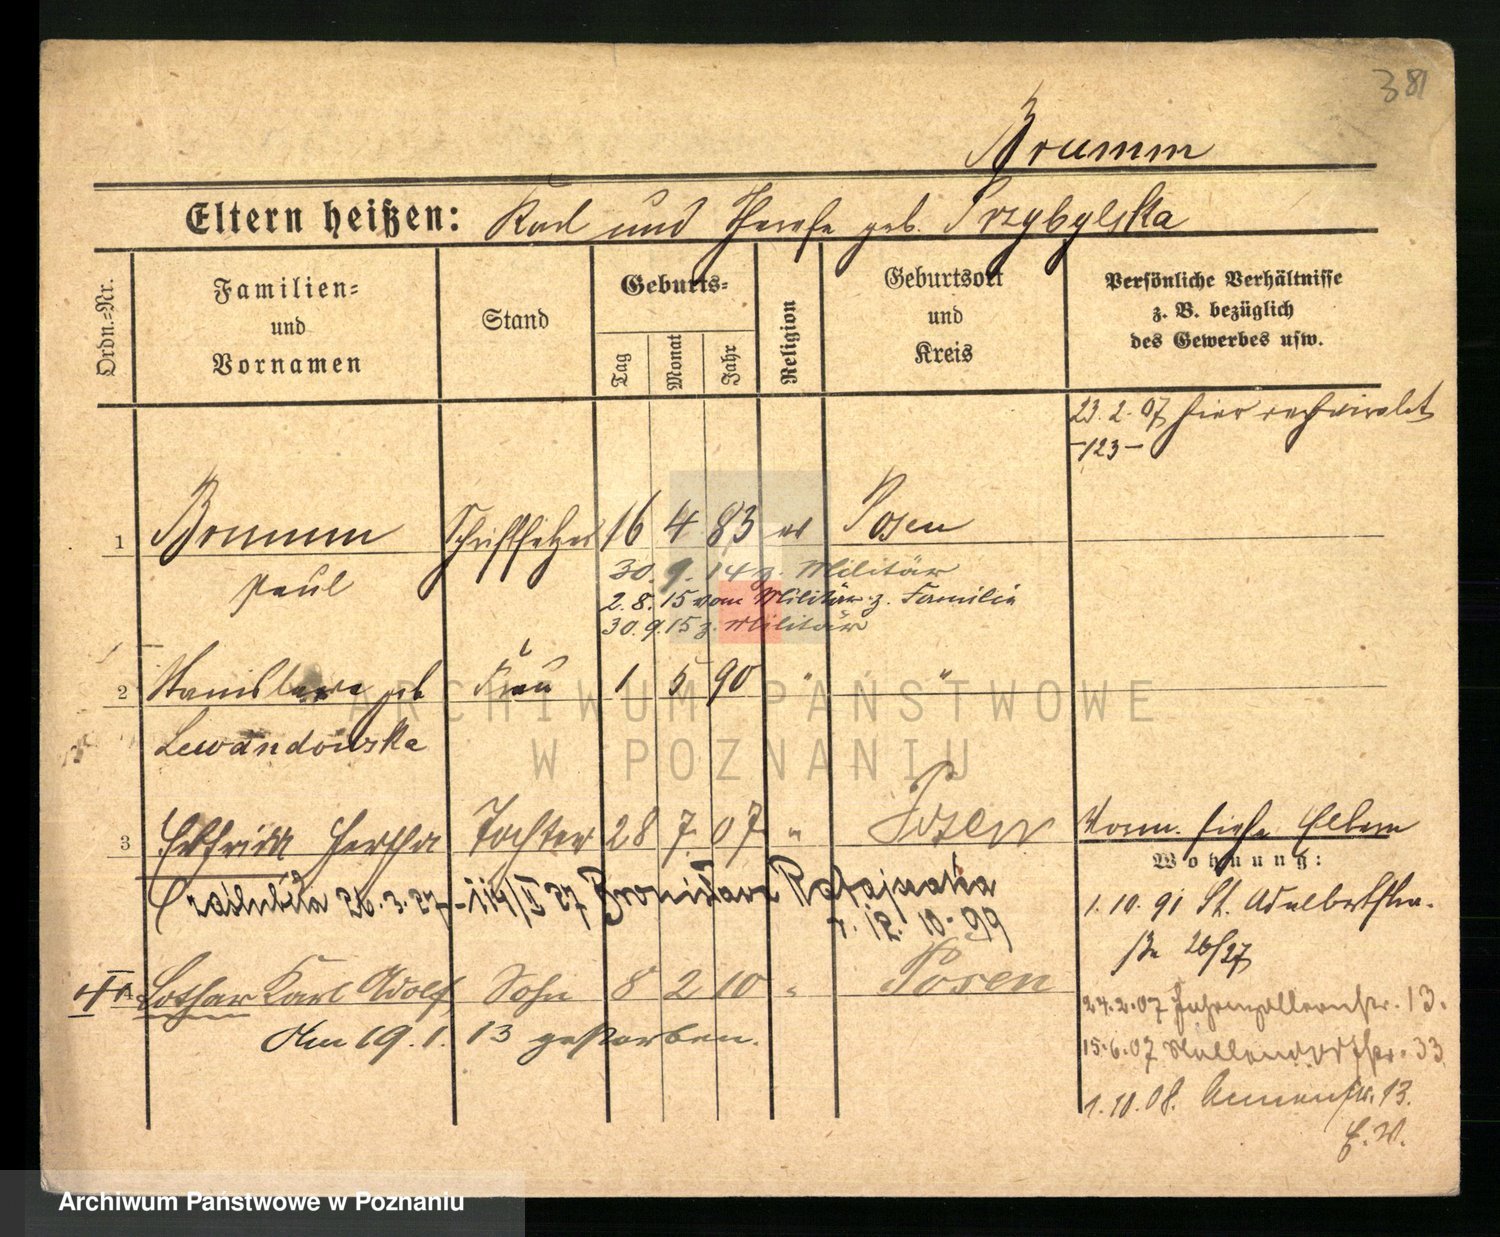 381
Brumm
Eltern heißen: Karl und Therese geb. Przybylska
Ordn.-Nr.
Familien-
und
Vornamen
Stand
Geburts-
Tag
Monat
Jahr
Religion
Geburtsort
und
Kreis
Persönliche Verhältnisse
z. B. bezüglich
des Gewerbes usw.
23.2.07 hier
-123-
1 Brumm Schriftsetzer 16 4 83 Posen
Paul
30.9.14 z. Militär
2.8.15 vom Militär z. Familie
30.9.15 z. Militär
2 Stanislawa geb. Frau 1 5 90 " "
Lewandowska
3 Hertha Tochter 28 7 07 " Posen
siehe Eltern
Wohnung:
26.3.27 - 114/II 27 Bronisława Ratajczaka
12.10.99
1.10.91 St. Adalbertstr.
26/27
Lothar Karl Adolf Sohn 8 2 10 " Posen
Am 19.1.13 gestorben.
24.2.07 Hohenzollernstr. 13.
15.6.07 33
1.10.08. 13.
E.V.
ARCHIWUM PAŃSTWOWE
W POZNANIU
Archiwum Państwowe w Poznaniu